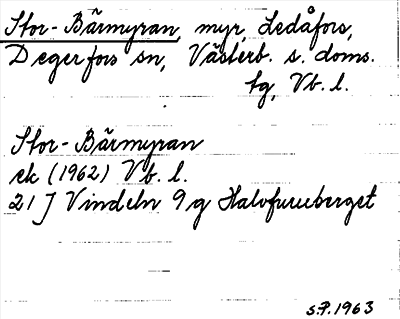 Stor-Bärmyran, myr, Ledåfors,
Degerfors sn, Västerb. s. doms.
tg, Vb. l.
Stor-Bärmyran
ek (1962) Vb. l.
21 J Vindeln 9 g Halvfureberget
S.P. 1963